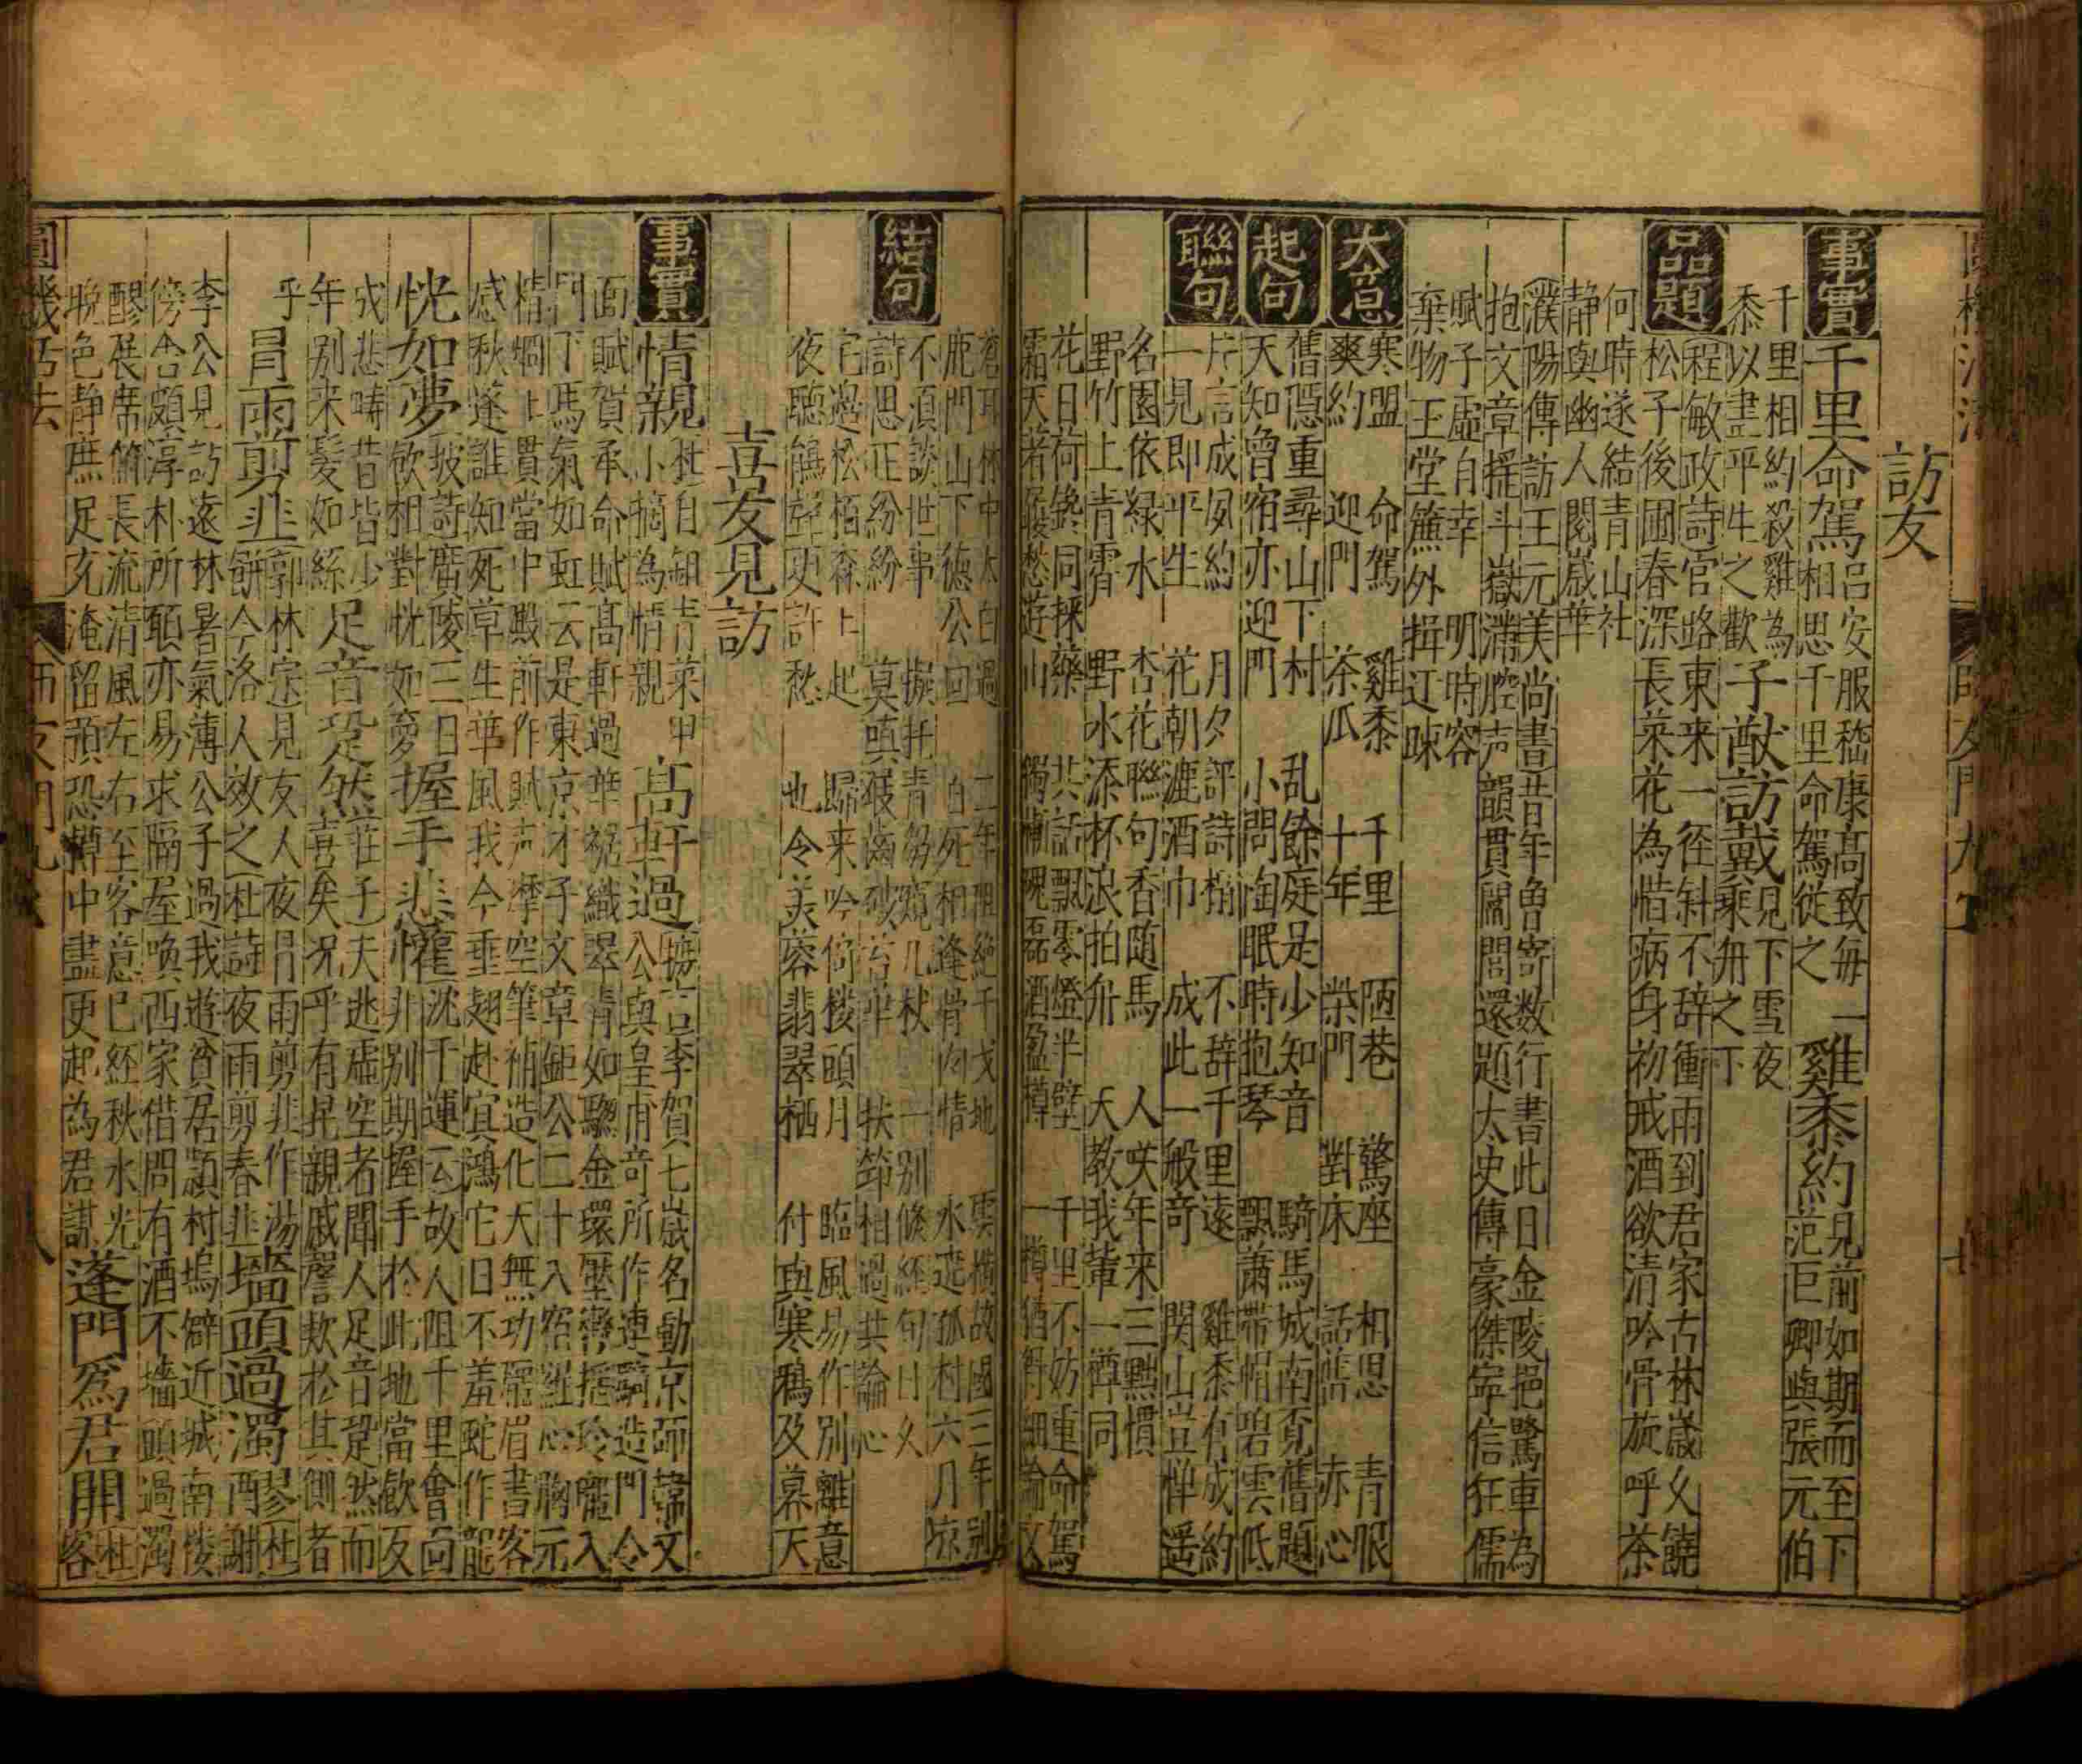 訪友
事實
千里命駕
呂安服嵇康高致毎一
相思千里命駕從之
雞黍約
見前如期而至下
范巨卿與張元伯
千里相約殺雞為
黍以盡平生之歡
子猷訪戴
見下雪夜
乘舟之下
品題
程敏政詩官路東来一徑斜不辞衝雨到君家古林歲乆饒
松子後圃春深長菜花為惜病身初戒酒欲清吟骨旋呼茶
何時遂結青山社
静與幽人閱歲華
濮陽傳訪王元美尚書昔年魯寄数行書此日金陵挹鷺車為
抱文章揺斗嶽滿腔声韻貫閶閭還題太史傳豪傑寧信狂儒
賦子虛自幸 明時容
棄物王堂簾外揖迂踈
大意
寒盟 命駕 雞黍 千里 陋巷 驚座 相思 青眼
爽約 迎門 茶瓜 十年 柴門 對床 話舊 赤心
起句
舊隱重尋山下村 乱餘庭是少知音 騎馬城南覓舊題
天知曾宿亦迎門 小問淘眠時抱琴 飄蕭帶帽碧雲低
聯句
片言成夙約 月夕評詩榻 不辞千里遠 雞黍有成約
一見即平生 花朝漉酒巾 成此一般竒 関山豈憚遥
名園依緑水 杏花聯句香随馬 人咲年来三黜慣
野竹上青霄 野水添杯浪拍舟 天教我輩一樽同
花日荷鋤同採藥 共話飄零燈半壁 千里不妨重命駕
霜天著屐愁遊山 獨憐磈磊酒盈樽 一樽猶得細論文
蒼耳林中太白過 二年阻絶干戈地 雲横故國三年别
鹿門山下德公回 白死相逢骨肉情 水遶孤村六月凉
結句
不須談世事 擬托青芻窺几杖 一别倐経旬日乆
詩思正紛紛 莫嗔屐齒破苔華 扶筇相過共論心
它過松栢森上起 歸来吟倚楼頭月 臨風易作别離意
夜聽鵑聲更許愁 也令芙蓉翡翠栖 付與寒鴉及暮天
喜友見訪
事實
情親
杜自鉏青菜甲
小摘為情親
高軒過
摭言李賀七歲名動京師韓文
公與皇甫竒所作連騎造門令
面賦賀承命賦高軒過華裾織翠青如䓗金環壓轡揺玲瓏入
門下馬氣如虹云是東京才子文章鉅公二十八宿羅心胸元
精烱上貫當中殿前作賦声摩空筆補造化天無功龎眉書客
感秋蓬誰知死草生華風我今垂翅赴㝠鴻它日不羞蛇作龍
恍如夢
坡詩廣陵三日
飲相對恍如夢
握手悲懽
沈千運云故人阻千里會面
非别期握手於此地當歡反
成悲疇昔皆少
年别来髪如絲
足音跫然
莊子夫逃虛空者聞人足音跫然而
喜矣况乎有昆親戚謦欬於其側者
乎
冐雨剪韭
郭林宗見友人夜冐雨剪韭作湯
餅今洛人效之杜詩夜雨剪春韭
墻頭過濁醪
杜
两謝
李公見訪遠林暑氣薄公子過我遊貧居頴村塢僻近城南楼
傍舎頗淳朴所願亦易求隔屋喚西家借問有酒不墻頭過濁
醪展席俯長流清風左右至客意已経秋
晚色静庶足充淹留預恐罇中盡更起為君謀
逢門爲君開
杜
客
圓機活法
師友門九巻
八